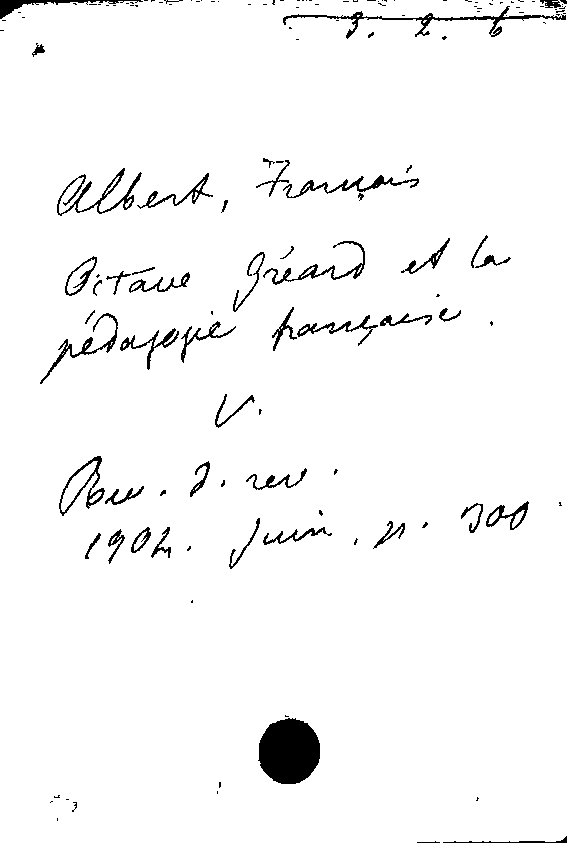 3. 2. 6
Albert, François
Octave Gréard et la
pédagogie française.
V.
Rev. d. rev.
1904. Juin, p. 300